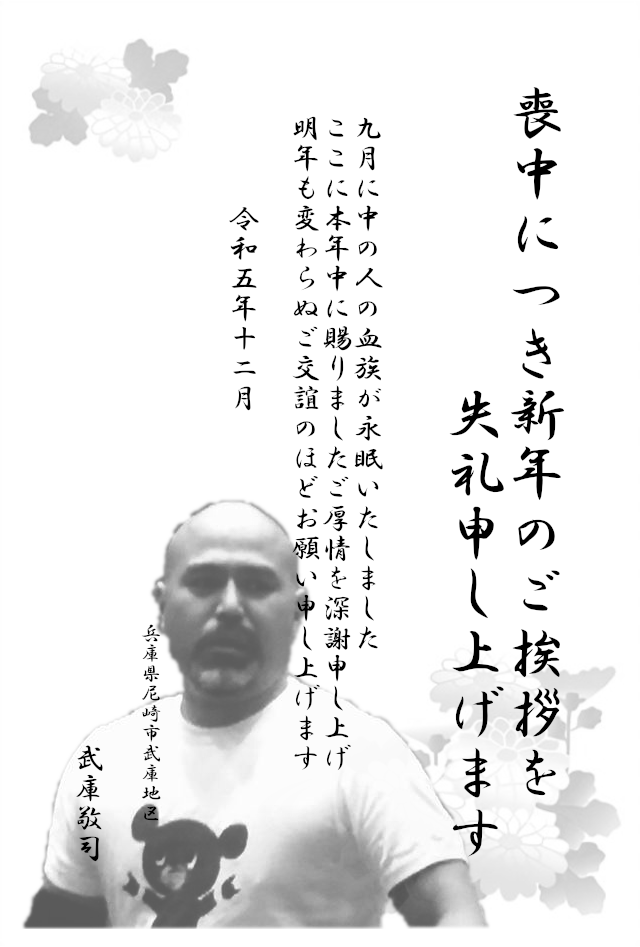 喪中につき新年のご挨拶を
失礼申し上げます
九月に中の人の血族が永眠いたしました
ここに本年中に賜りましたご厚情を深謝申し上げ
明年も変わらぬご交誼のほどお願い申し上げます
令和五年十二月
兵庫県尼崎市武庫地区
武庫敬司